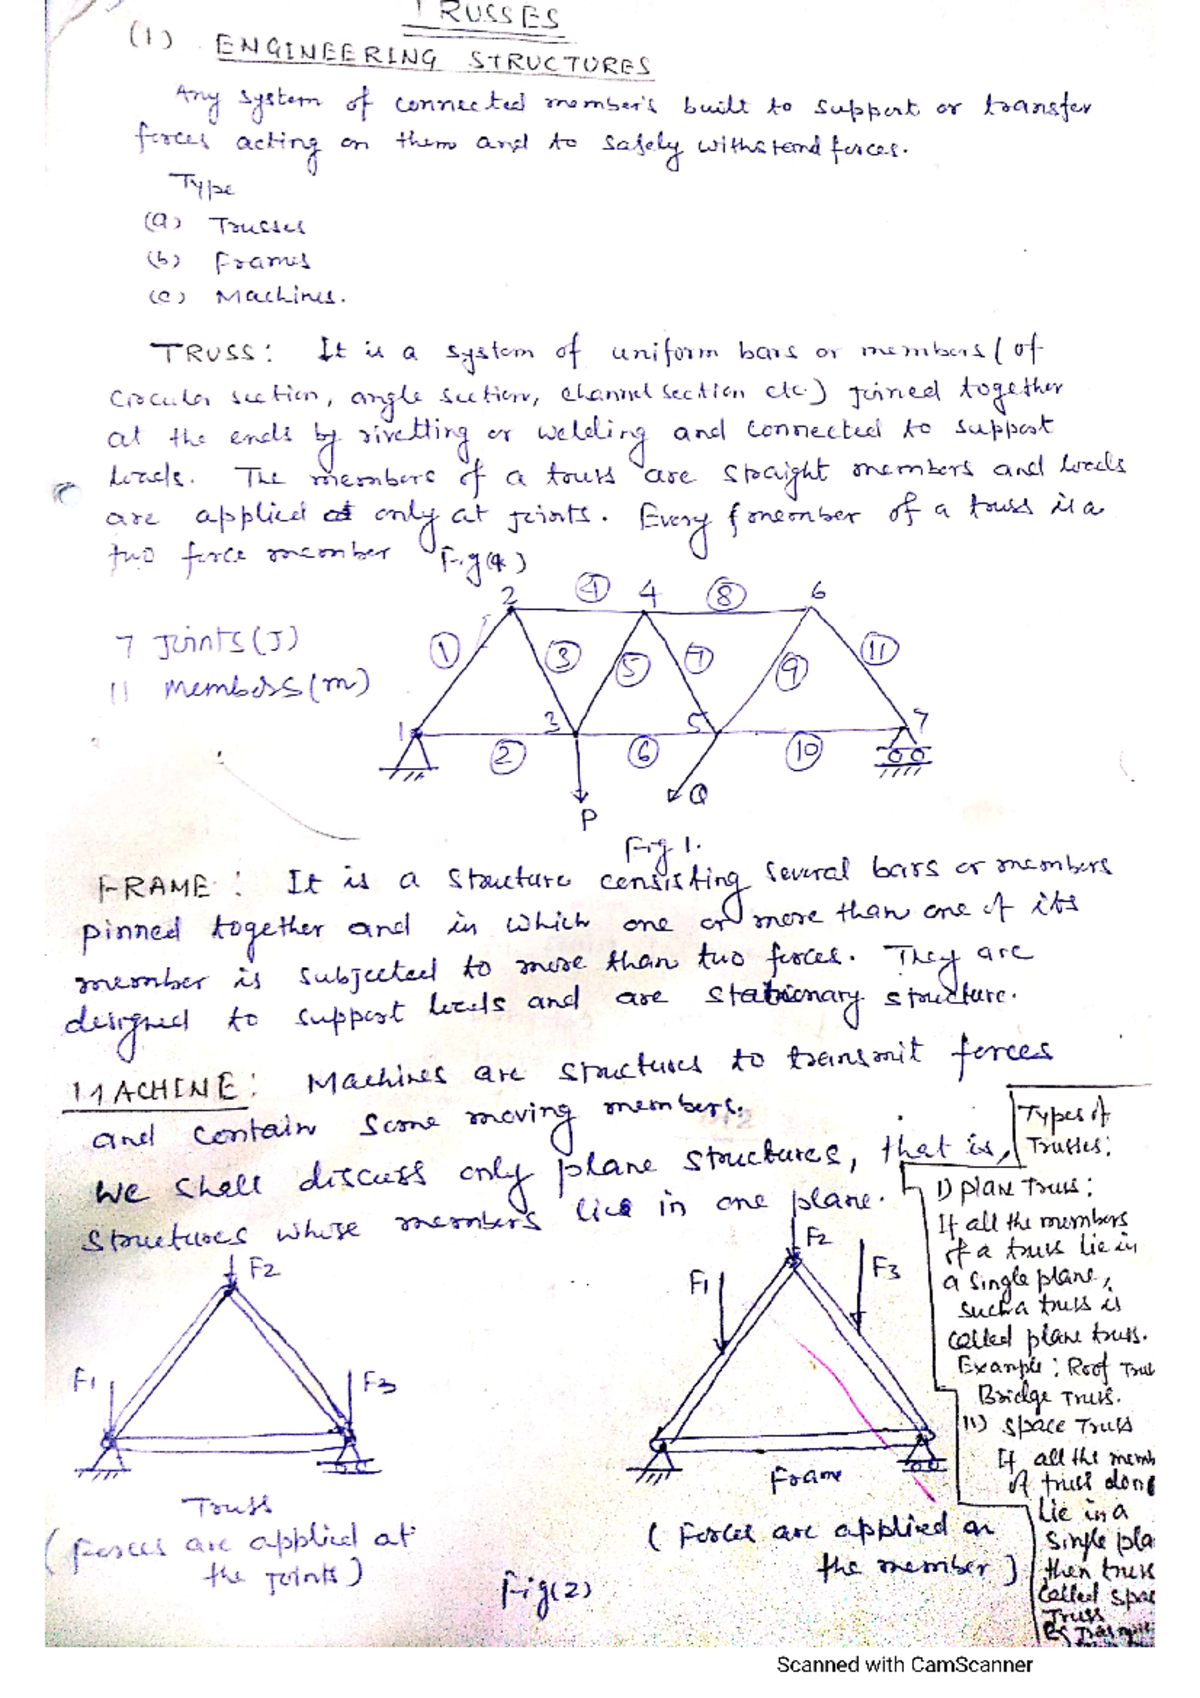 TRUSSES
(1) ENGINEERING STRUCTURES
Any system of connected member's built to support or transfer
forces acting on them and to safely withstand forces.
Type
(a) Trusses
(b) Frames
(c) Machines.
TRUSS: It is a system of uniform bars or members (of
Circular section, angle section, channel section etc.) joined together
at the ends by rivetting or welding and connected to support
loads. The members of a truss are straight members and loads
are applied at only at joints. Every member of a truss is a
two force member Fig( )
7 Joints (J)
11 Members (m)
1 2 3 4 5 6 7
1 2 3 4 5 6 7 8 9 10 11
P
Q
Fig 1.
FRAME: It is a structure consisting several bars or members
pinned together and in which one or more than one of its
member is subjected to more than two forces. They are
designed to support loads and are stationary structure.
MACHINE: Machines are structures to transmit forces
and contain some moving members.
We shall discuss only plane structures, that is,
structures whose members lies in one plane.
Types of
Trusses:
1) plane Truss:
If all the members
of a truss lie in
a single plane,
such a truss is
called plane truss.
Example: Roof Trus
Bridge Truss.
11) Space Truss
If all the memb
of truss dont
lie in a
Single pla
then truss
called spac
Truss
F1
F2
F3
Truss
(Forces are applied at
the joints)
F1
F2
F3
Frame
(Forces are applied on
the member)
Fig(2)
Scanned with CamScanner